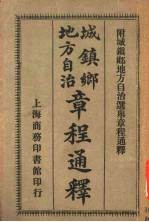 附城鎮鄉地方自治選舉章程通釋
城鎮鄉
地方自治
章程通釋
上海商務印書館印行